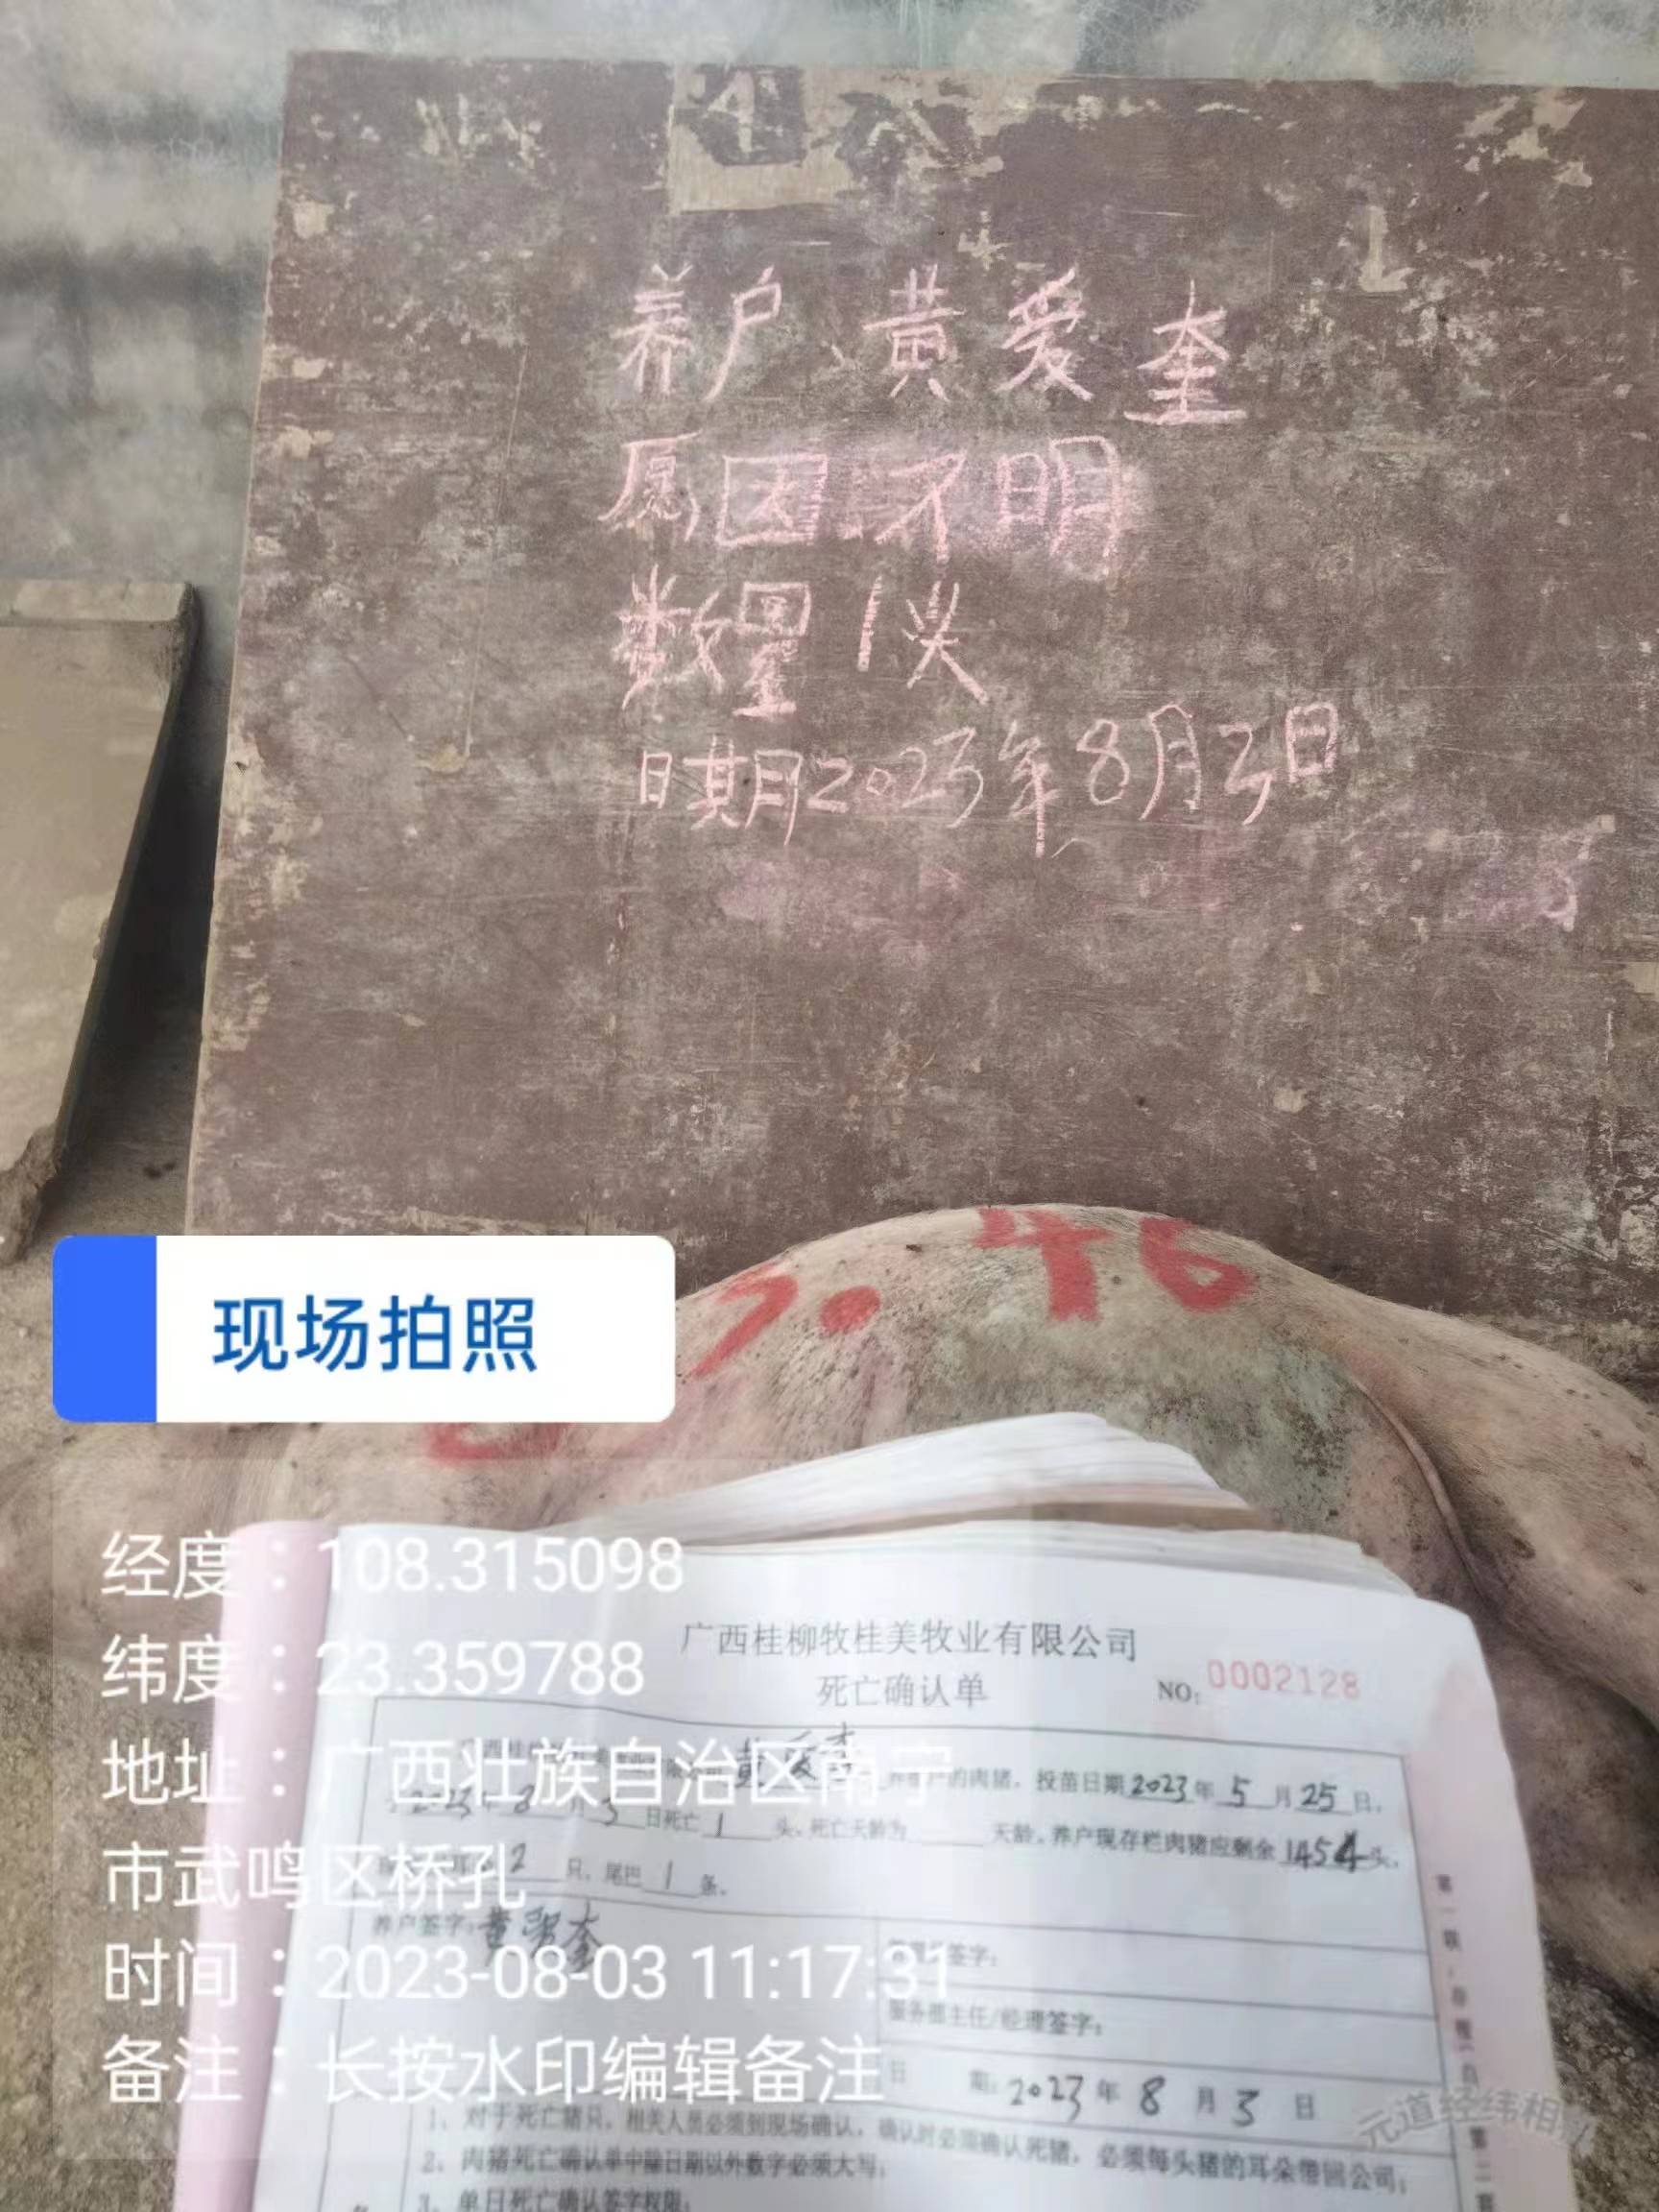 养户、黄爱奎
原因不明
数量1头
日期2023年8月3日
7.46
现场拍照
经度：108.315098
纬度：23.359788
地址：广西壮族自治区南宁
市武鸣区桥孔
时间：2023-08-03 11:17:31
备注：长按水印编辑备注
广西桂柳牧桂美牧业有限公司
死亡确认单
NO：0002128
黄爱奎 的肉猪，投苗日期2023年5月25日，
2023年8月3日死亡1头，死亡天龄为 天龄，养户现存栏肉猪应剩余1454头，
2只，尾巴1条。
养户签字：黄爱奎
签字：
服务部主任/经理签字：
日 期：2023年8月3日
1、对于死亡猪只，相关人员必须到现场确认，确认时必须确认死猪，必须每头猪的耳朵带回公司；
2、肉猪死亡确认单中除日期以外数字必须大写；
3、单日死亡确认签字权限：
元道经纬相机